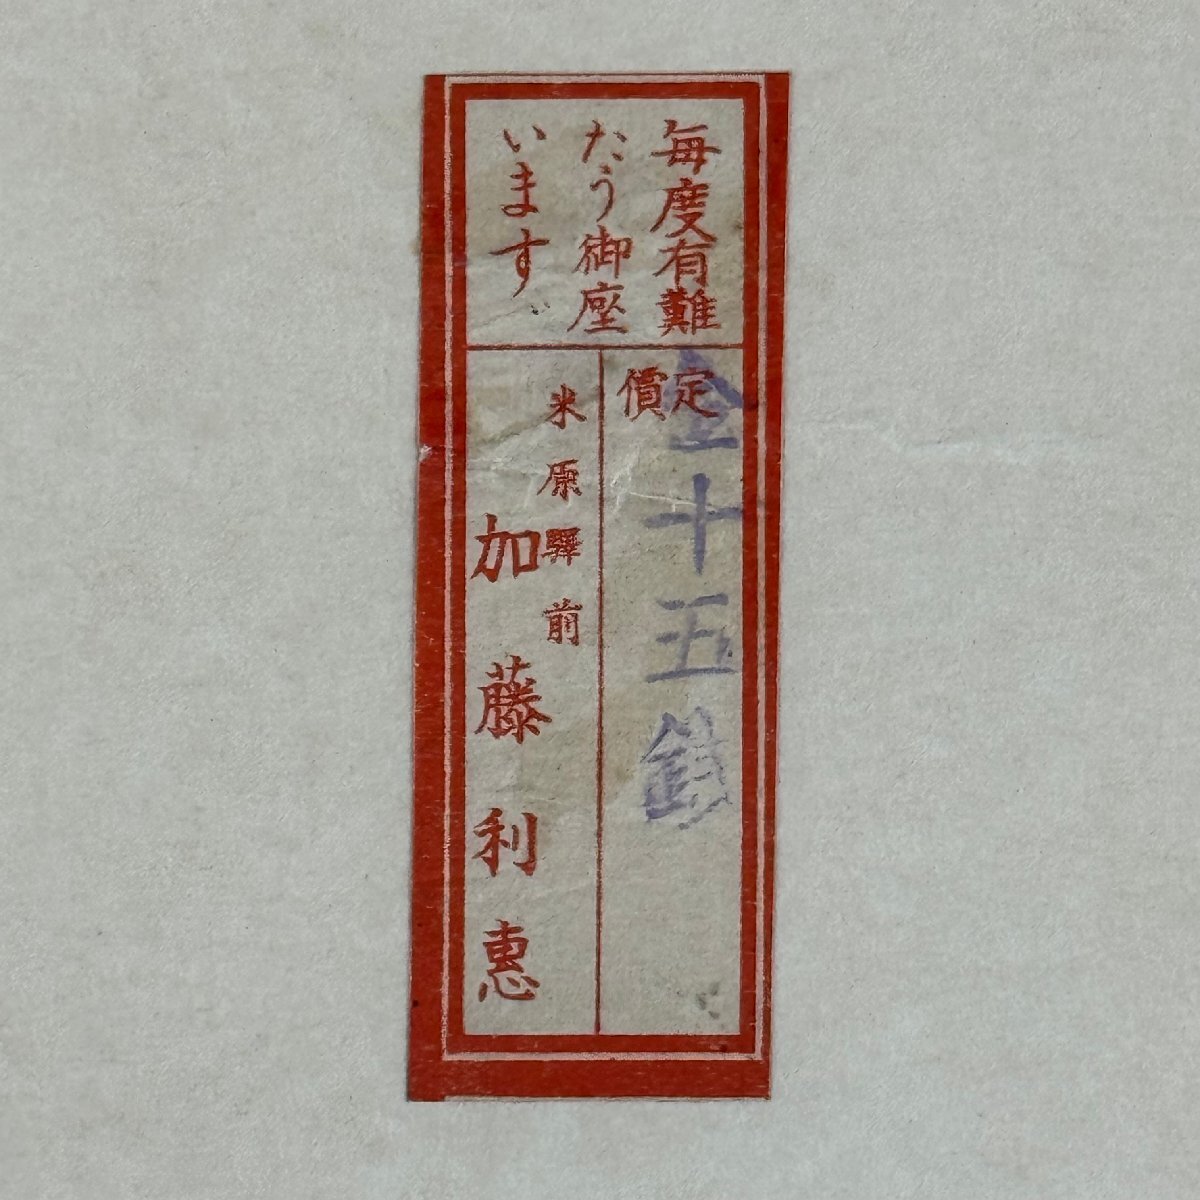 毎度有難
たう御座
います
定價
金十五錢
米原驛前
加藤利惠